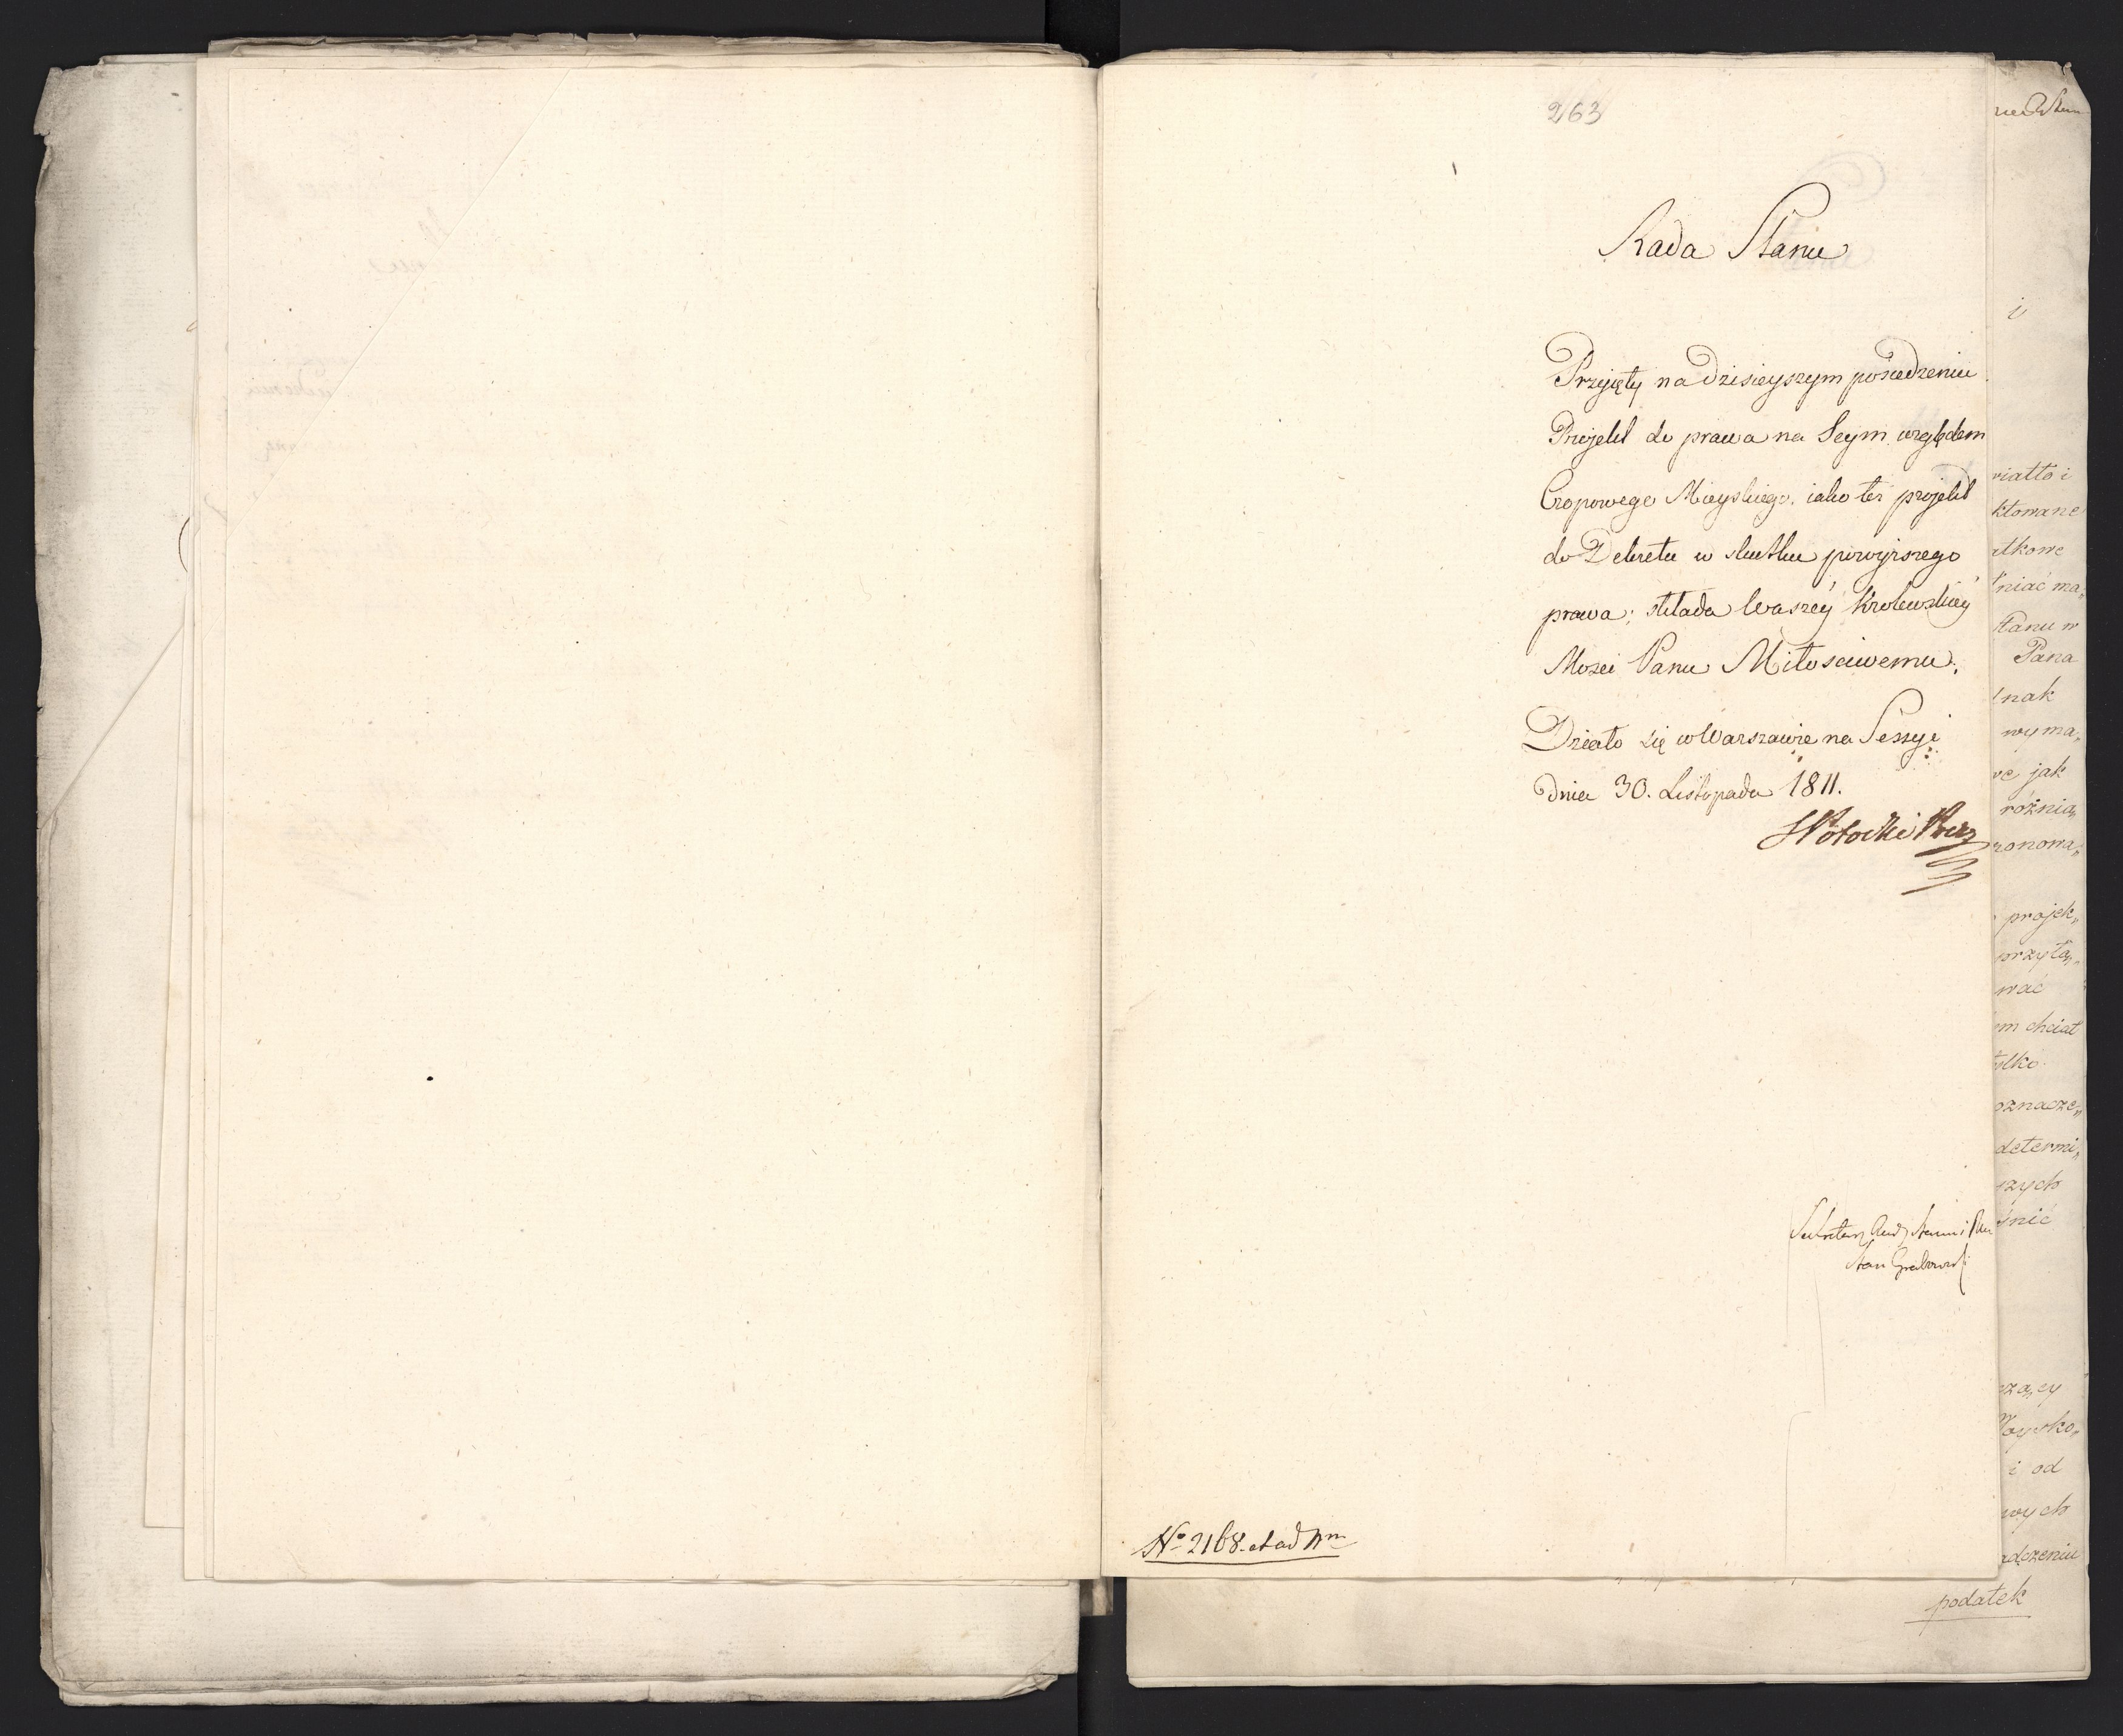 263
Rada Stanu
Przyięty na dzisieyszym posiedzeniu
Projekt do prawa na Seym względem
Czopowego Mieyskiego, iako też projekt
do Dekretu w skutku powyższego
prawa; składa Waszey Krolewskiey
Mosci Panu Miłosciwemu.
Działo się w Warszawie na Sessyi
dnia 30. Listopada 1811.
SPotocki Prez
Sekretarz Rady Stanu i
Stan Grabowski
No 2168. et ad
i
riatto i
ktowane
atkowe
niać ma„
Stanu w
Pana
nak
wyma„
ve jak
rożnia„
zonowa„
projek„
przyta„
wać
em chciał
ylko
oznacze„
determi„
szych
śnić
cza„cy
Woysko„
i od
wych
adczeniu
podatek